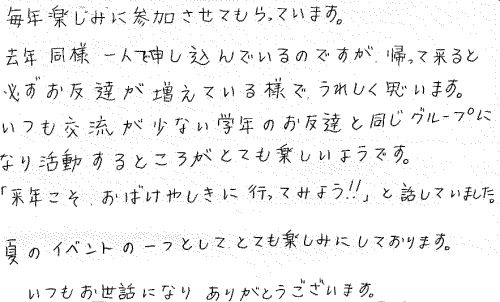 毎年楽しみに参加させてもらっています。
去年同様一人で申し込んでいるのですが、帰って来ると
必ずお友達が増えている様で、うれしく思います。
いつも交流が少ない学年のお友達と同じグループに
なり活動するところがとても楽しいようです。
「来年こそ、おばけやしきに行ってみよう!!」と話していました。
夏のイベントの一つとして、とても楽しみにしております。
いつもお世話になり ありがとうございます。